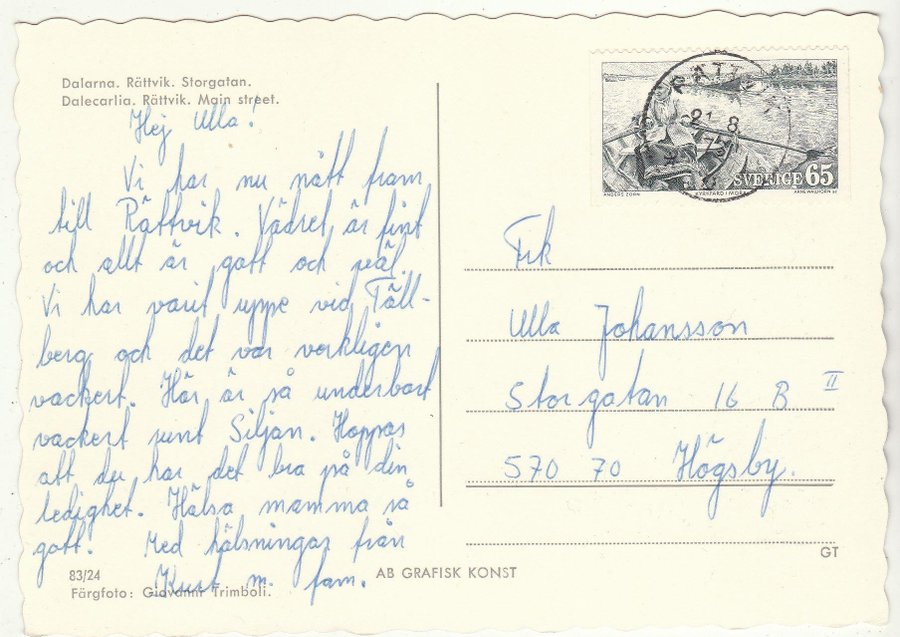 Dalarna. Rättvik. Storgatan.
Dalecarlia. Rättvik. Main street.
Hej Ulla!
Vi har nu nått fram
till Rättvik. Vädret är fint
och allt är gott och väl.
Vi har varit uppe vid Täll-
berg och det var verkligen
vackert. Här är så underbart
vackert runt Siljan. Hoppas
att du har det bra på din
ledighet. Hälsa mamma så
gott. Med hälsningar från
Kurt m. fam.
83/24
Färgfoto: Giovanni Trimboli.
AB GRAFISK KONST
RÄTTVIK
21 8
SVERIGE 65
ANDERS ZORN
KYRKFÄRD I MORA
ARNE WALLHORN SC
Frk
Ulla Johansson
Storgatan 16 B II
570 70 Högsby.
GT